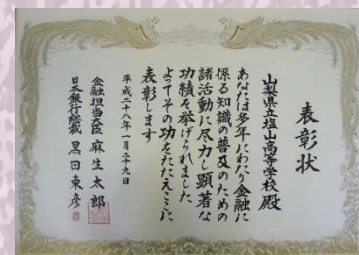 表彰状
山梨県立塩山高等学校殿
あなたは多年にわたり金融に
係る知識の普及のための
諸活動に尽力し顕著な
功績を挙げられました
よってその功をたたえここに
表彰します
平成二十八年一月二十九日
金融担当大臣 麻生太郎
日本銀行総裁 黒田東彦